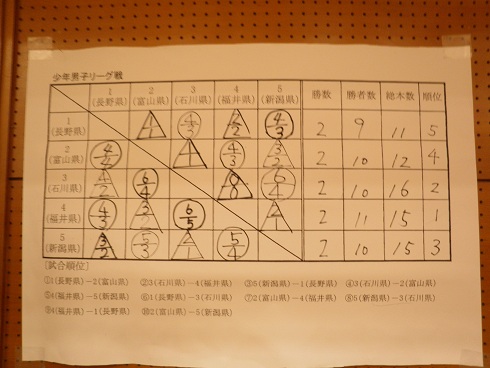 少年男子リーグ戦
1 2 3 4 5
(長野県) (富山県) (石川県) (福井県) (新潟県) 勝数 勝者数 総本数 順位
1 (長野県) 4/3 2/2 4/3 2 9 11 5
2 (富山県) 4/3 3/2 2 10 12 4
3 (石川県) 4/2 6/4 6/4 2 10 16 2
4 (福井県) 4/3 3/2 6/5 2/1 2 11 15 1
5 (新潟県) 3/2 3/3 2/1 5/4 2 10 15 3
[試合順位]
①1(長野県)−2(富山県) ②3(石川県)−4(福井県) ③5(新潟県)−1(長野県) ④3(石川県)−2(富山県)
⑤4(福井県)−5(新潟県) ⑥1(長野県)−3(石川県) ⑦2(富山県)−4(福井県) ⑧5(新潟県)−3(石川県)
⑨4(福井県)−1(長野県) ⑩2(富山県)−5(新潟県)